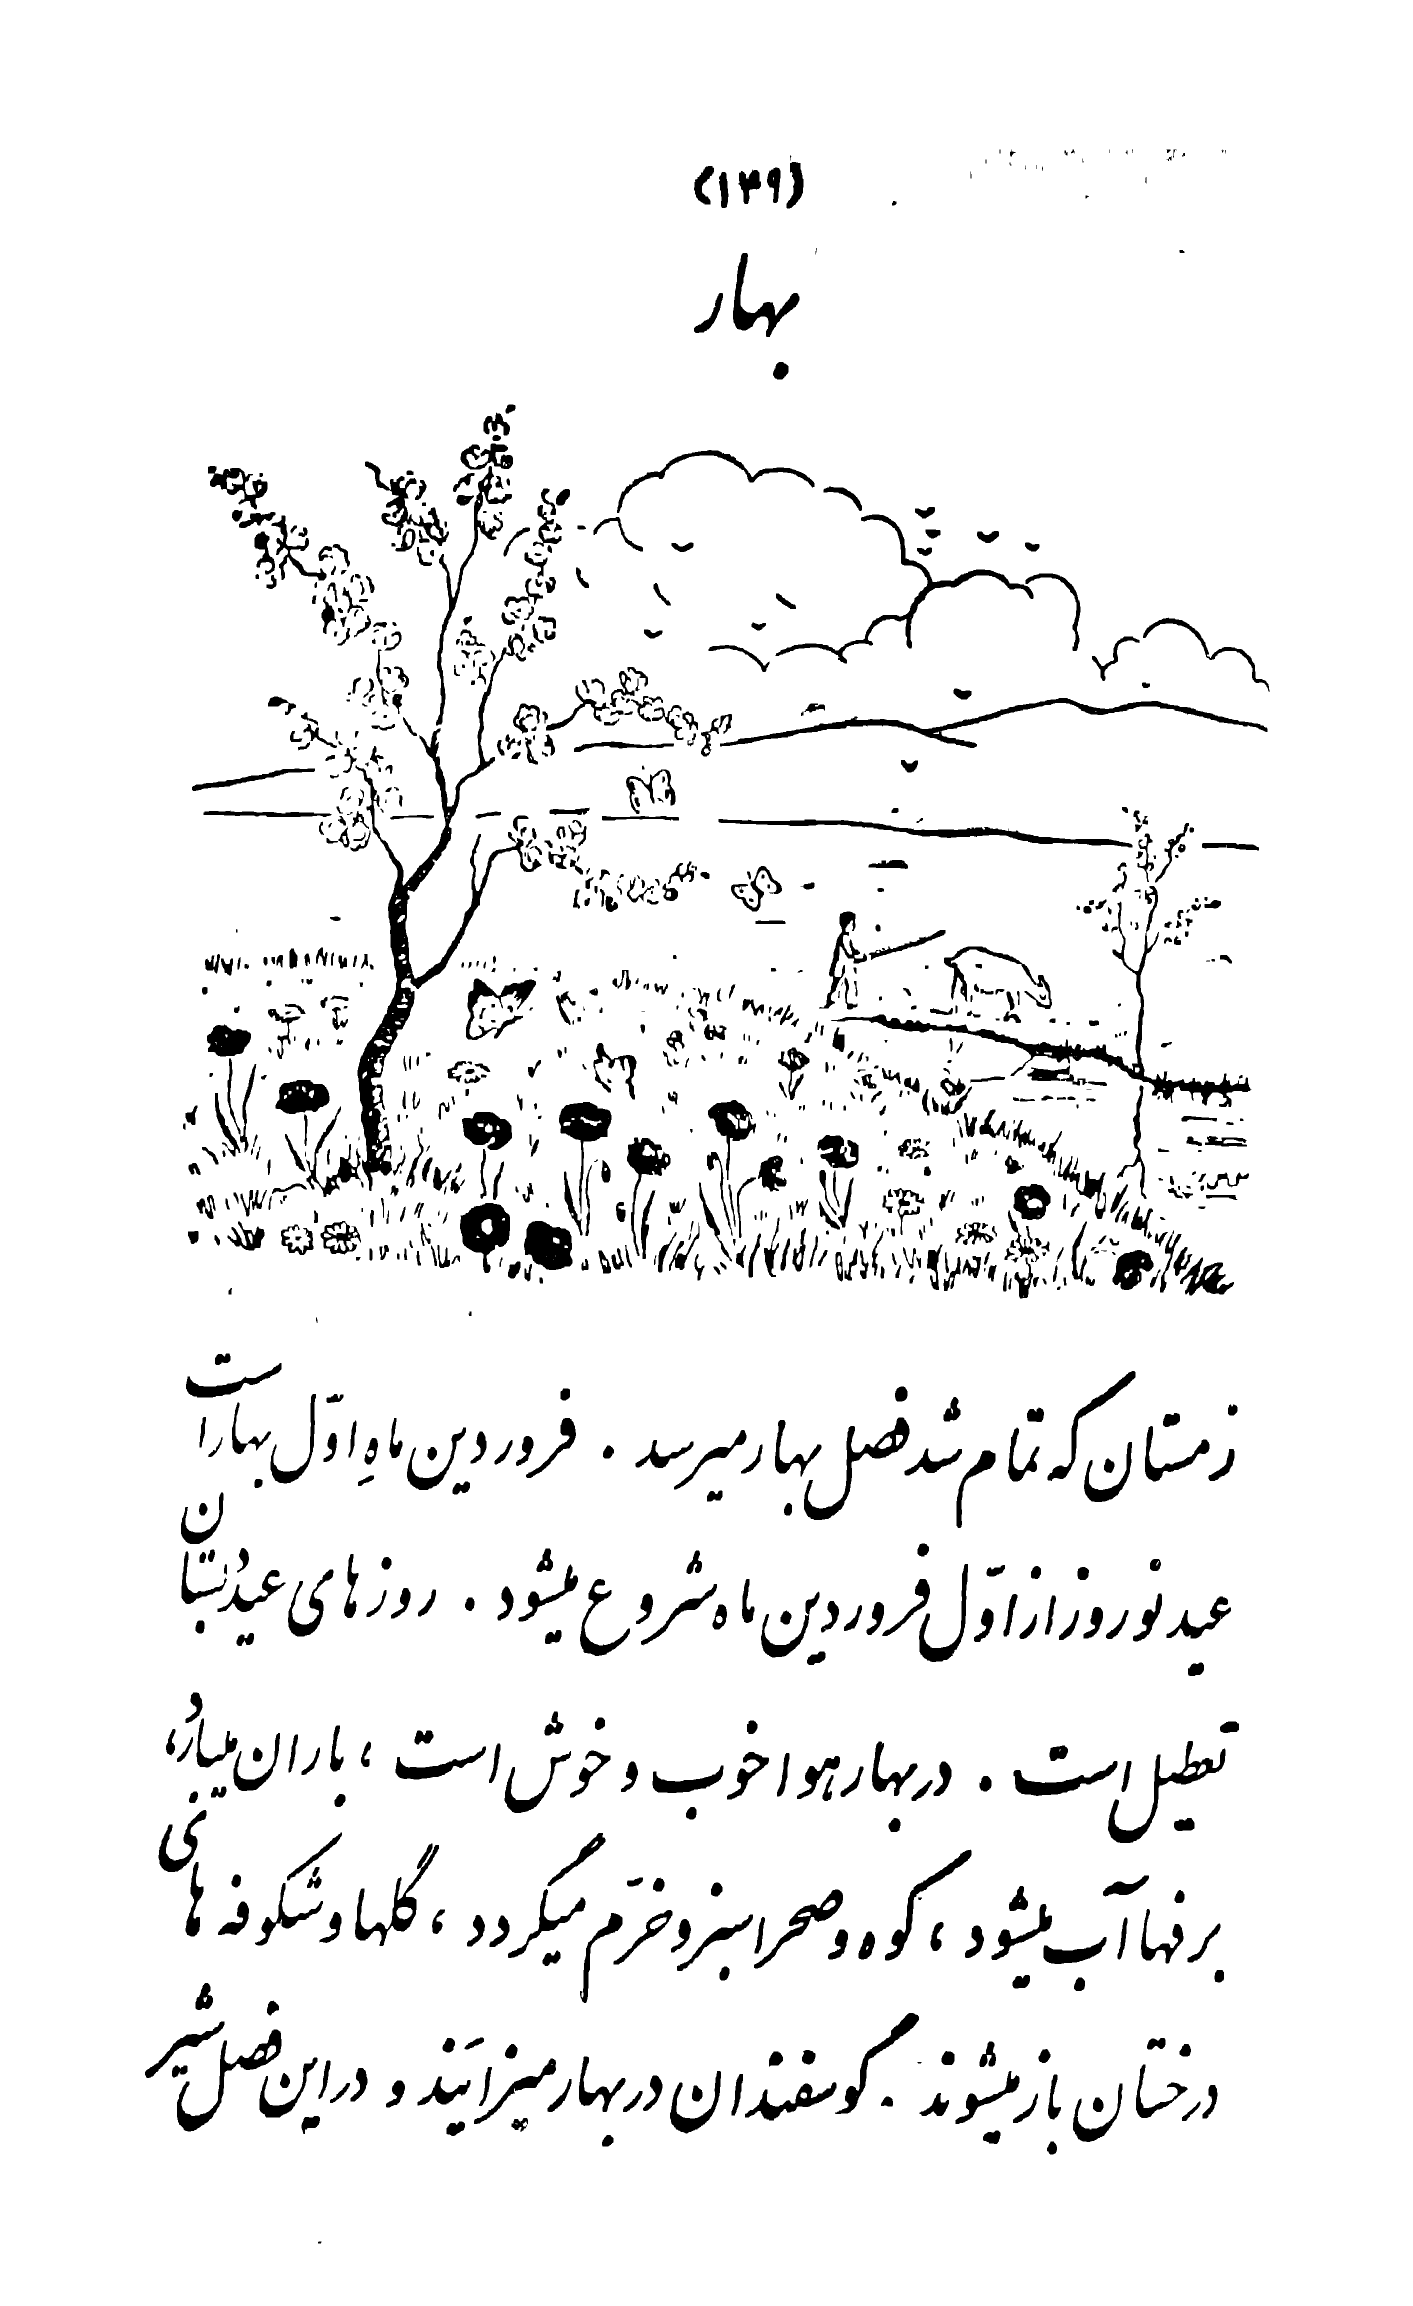 (۱۳۹)
بهار
زمستان که تمام شد فصل بهار میرسد . فروردین ماهِ اوّل بهار است
عید نوروز از اوّل فروردین ماه شروع میشود . روزهای عید دبستان
تعطیل است . در بهار هوا خوب و خوش است ، باران میبارد ،
برفها آب میشود ، کوه و صحرا سبز و خرّم میگردد ، گلها و شکوفه های
درختان باز میشوند . گوسفندان در بهار میزایَند و در این فصل شیر